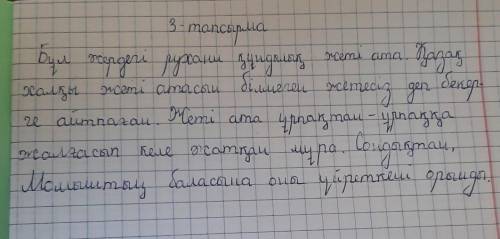 3-тапсырма
Бұл жердегі рухани құндылық жеті ата. Қазақ
халқы жеті атасын білмеген жетесіз деп бекер-
ге айтпаған. Жеті ата ұрпақтан-ұрпаққа
жалғасып келе жатқан мұра. Сондықтан,
Малыштың баласына оны үйреткені орынды.